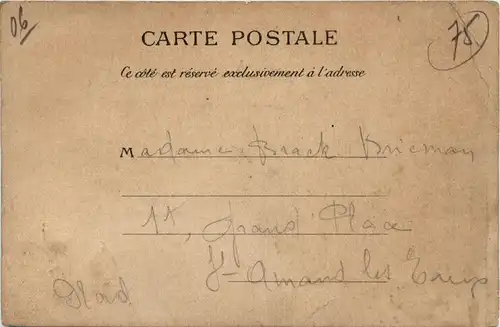 06
75
CARTE POSTALE
Ce côté est réservé exclusivement à l'adresse
Madame Braek
Grand' Place
St Amand les Eaux